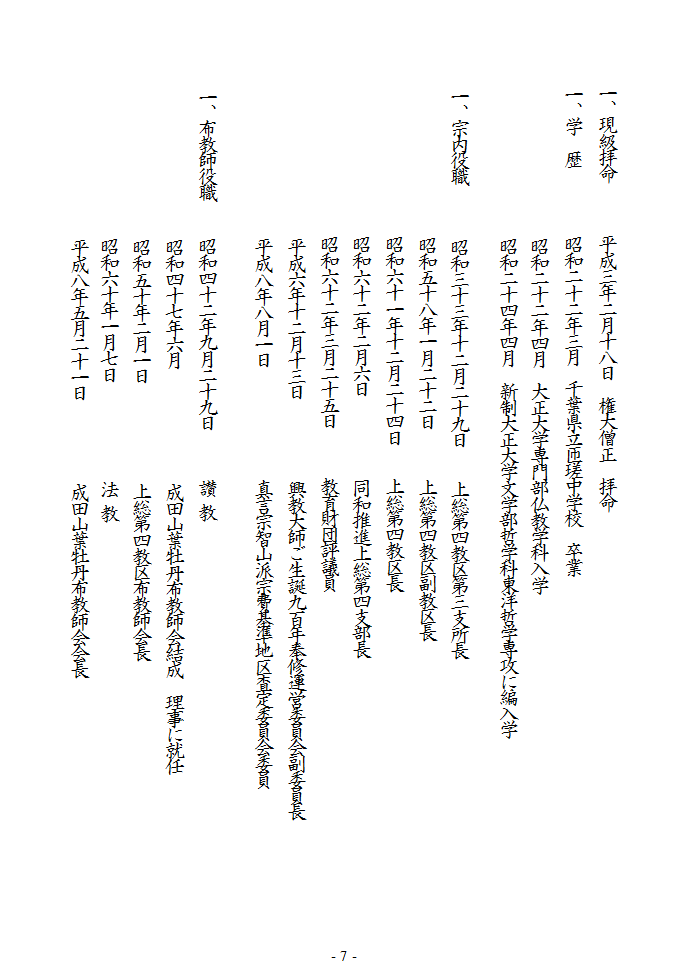 一、現級拝命　平成三年二月十八日　権大僧正　拝命
一、学　歴　昭和二十二年三月　千葉県立匝瑳中学校　卒業
昭和二十二年四月　大正大学専門部仏教学科入学
昭和二十四年四月　新制大正大学文学部哲学科東洋哲学専攻に編入学
一、宗内役職　昭和三十三年十二月二十九日　上総第四教区第三支所長
昭和五十八年一月二十二日　上総第四教区副教区長
昭和六十一年十二月二十四日　上総第四教区長
昭和六十二年二月六日　同和推進上総第四支部長
昭和六十二年三月二十五日　教育財団評議員
平成六年十二月十三日　興教大師ご生誕九百年奉修運営委員会副委員長
平成八年八月一日　真言宗智山派宗費基準地区査定委員会委員
一、布教師役職　昭和四十二年九月二十九日　讃教
昭和四十七年六月　成田山葉牡丹布教師会結成　理事に就任
昭和五十年二月一日　上総第四教区布教師会長
昭和六十年一月七日　法教
平成八年五月二十一日　成田山葉牡丹布教師会会長
- 7 -